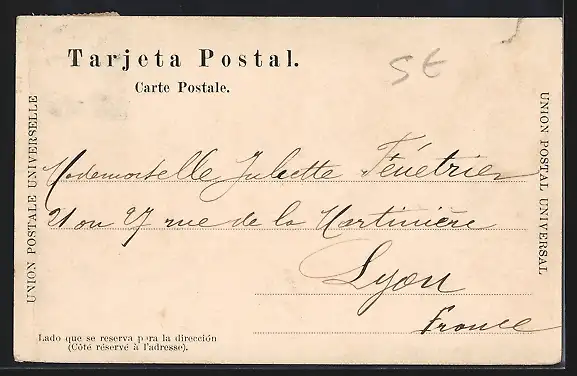 Tarjeta Postal.
Carte Postale.
St
UNION POSTALE UNIVERSELLE
UNION POSTAL UNIVERSAL
Mademoiselle Juliette Fénétrier
21 ou 27 rue de la Martinière
Lyon
France
Lado que se reserva para la dirección
(Côté réservé à l'adresse).